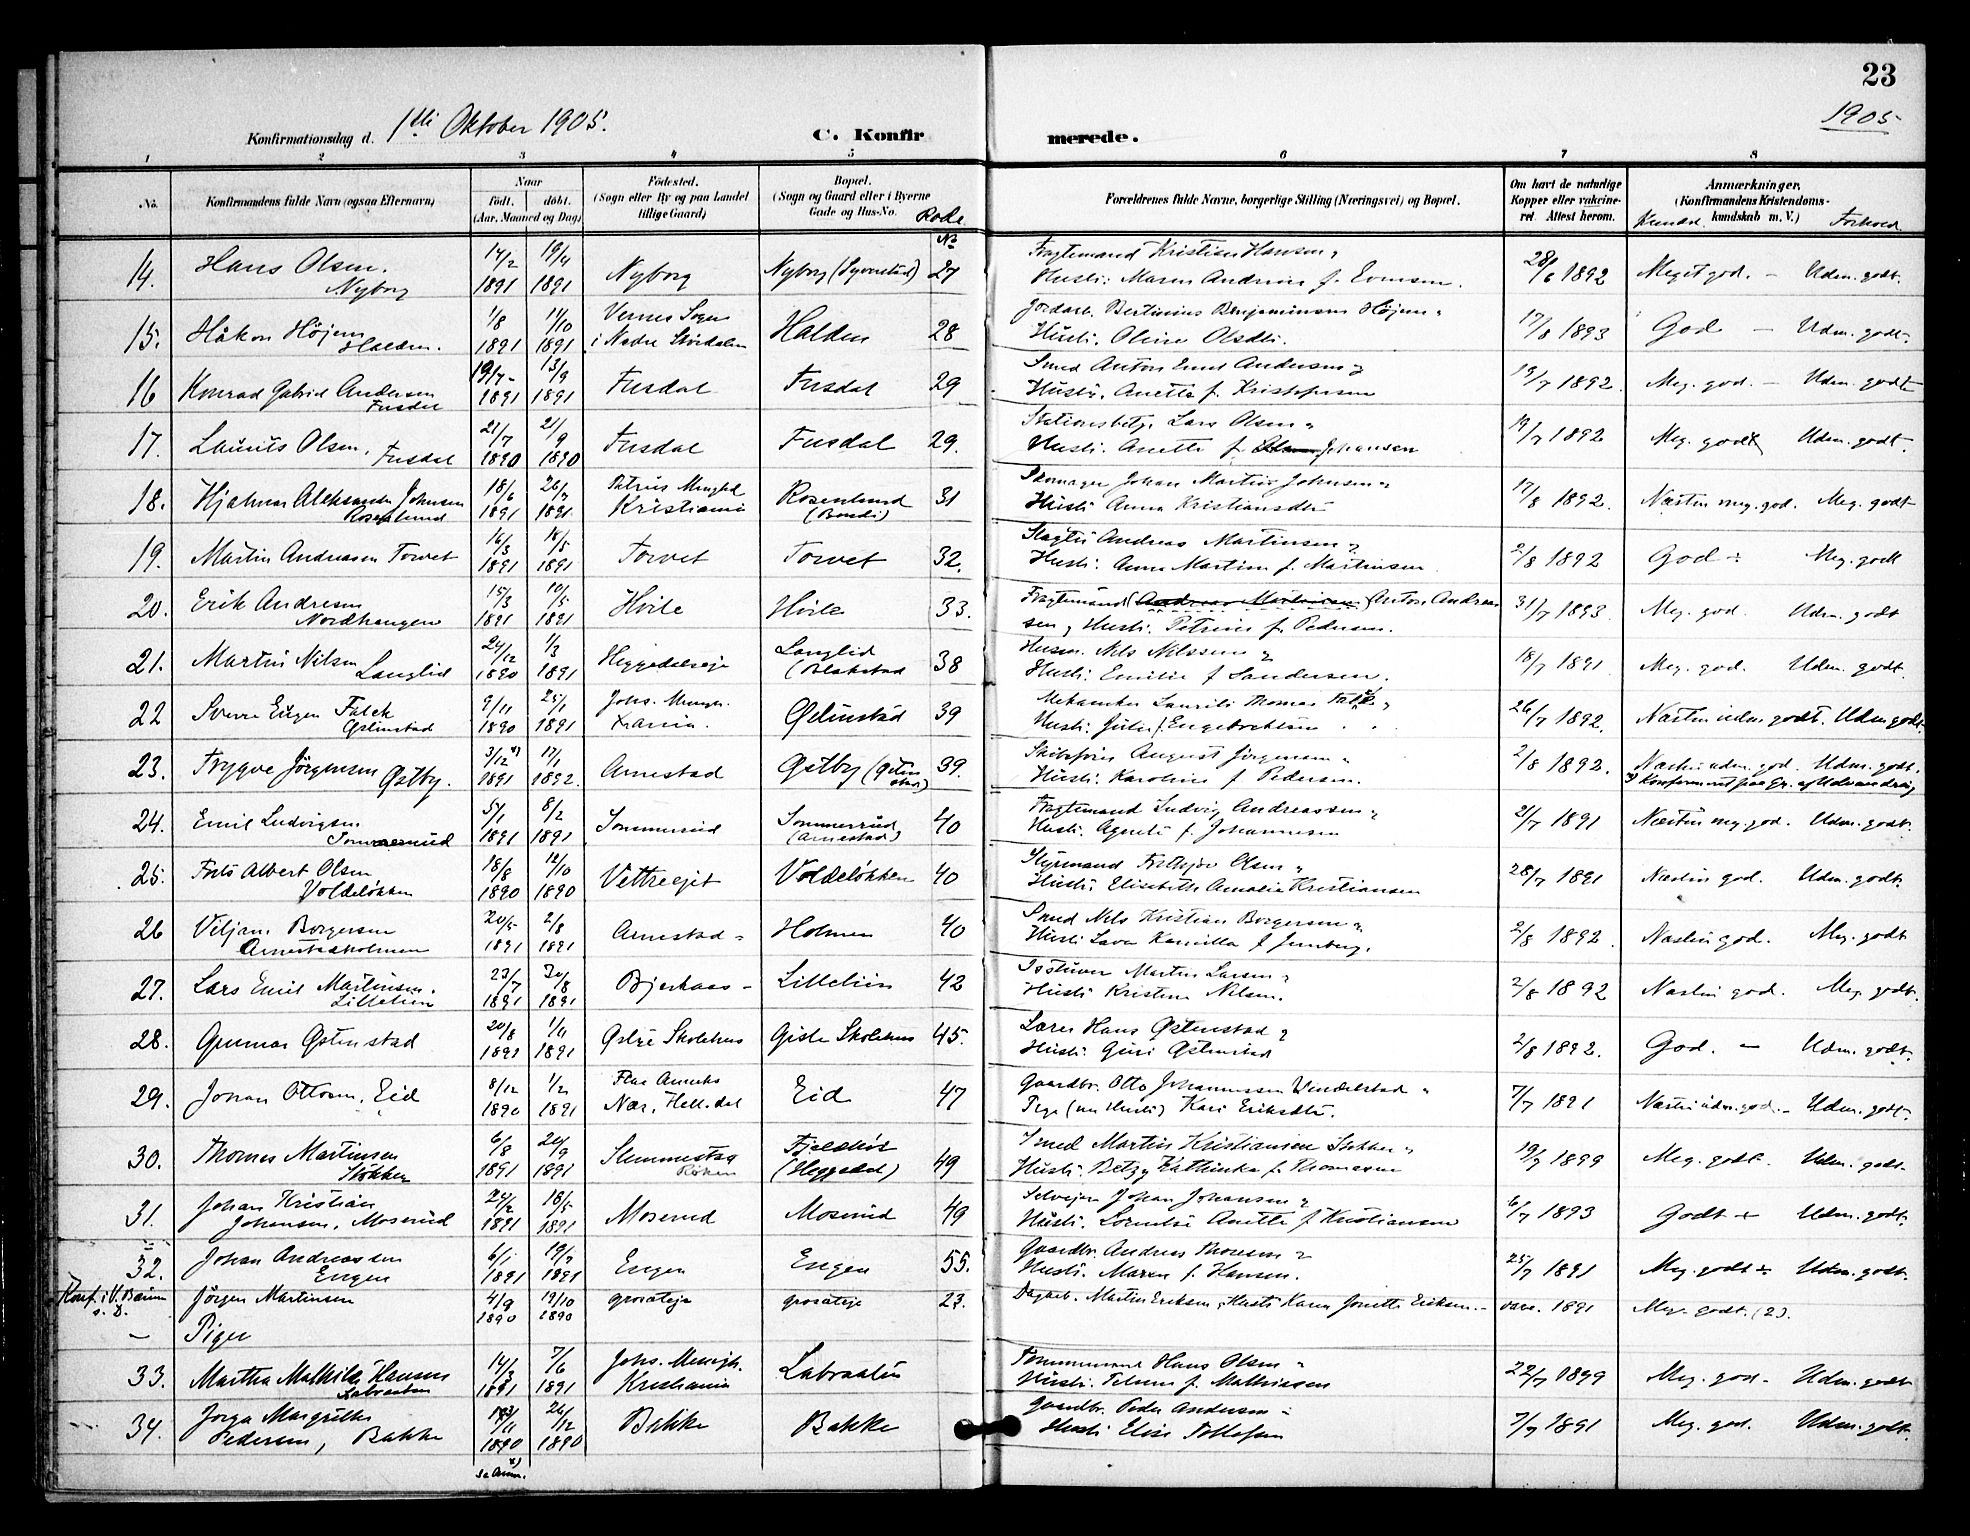 23
1905
Konfirmationsdag d. 1ste Oktober 1905. C. Konfirmerede.
1 2 3 4 5 6 7 8
No. Konfirmandens fulde Navn (ogsaa Efternavn) Naar født. døbt. (Aar, Maaned og Dag) Fødested. (Sogn eller By og paa Landet tillige Gaard) Bopæl. (Sogn og Gaard eller i Byerne Gade og Hus-No. Rode No Forældrenes fulde Navne, borgerlige Stilling (Næringsvei) og Bopæl. Om havt de naturlige Kopper eller vakcineret. Attest herom. Anmærkninger. (Konfirmandens Kristendomskundskab m. V.) Kundsk. Forhold
14. Hans Olsen. 14/2 19/4 Nyborg Nyborg 27 Fragtemand Kristian Hansen, 28/6 1892 Meget god. – Udm. godt.
Nyborg 1891 1891 Hustr. Maren Andrine f. Evensen.
15. Håkon Höjem 1/8 11/10 Vernes Sogn Halden 28 Jordarb. Bertinius Benjaminsen Höjem 17/8 1893 God – Udm. godt.
Halden. 1891 1891 i Nedre Stördalen Hustr. Oline Olsdtr.
16 Konrad Gabriel Andersen 19/7 13/9 Fusdal Fusdal 29 Smed Anton Emil Andersen 19/7 1892. Meg. god. – Udm. godt
Fusdal 1891 1891 Hustr. Anette f. Kristofersen
17. Laurits Olsen, 21/7 21/9 Fusdal Fusdal 29. Stationsbetj. Lars Olsen 19/7 1892 Meg. godt Udm. godt.
Fusdal 1890 1890 Hustr. Anette f. Johansen
18. Hjalmar Aleksander Johnsen 18/6 26/7 Petrus Menghed Rosenlund 31 Skomager Johan Martin Johnsen 17/8 1892. Næsten meg. god. Meg. godt
Rosenlund 1891 1891 Kristiania (Bondi) Hustr. Anna Kristiansdtr
19. Martin Andreasen Torvet 16/3 18/5 Torvet Torvet 32. Slagter Andreas Martinsen 2/8 1892 God ÷ Meg. godt
1891 1891 Hustr. Anne Martine f. Martinsen
20. Erik Andresen 15/3 10/5 Hvile Hvile 33. Fragtemand (Andreas Martinsen) Anton Andreas 31/7 1893 Meg. god. Udm. godt
Nordhangen 1891 1891 sen, Hustr. Petrine f. Pedersen.
21. Martin Nilsen 24/12 1/3 Heggedalseje Langlid 38 Husm. Nils Nilssen 18/7 1891 Meg. god. Udm. godt.
Langlid 1890 1891 (Blakstad Hustr. Emilie f. Sandersen.
22 Sverre Eugen Falck 9/11 25/1 Johs. Mengh. Östenstad 39 Mekaniker Laurits Thomas Falck 26/7 1892. Næsten udm. godt. Udm. godt.
Östenstad 1890 1891 Xania. Hustr. Julie f. Engebretsen
23. Trygve Jörgensen Östby. 3/12 x) 17/1 Arnestad Östby (Östenstad) 39. Skibsfører August Jörgensen 2/8 1892. Næsten udm. god. Udm. godt.
1891 1892. Hustr. Karoline f. Pedersen. x) Konfirmeret paa Gr. af Udvandring
24. Emil Ludvigsen 5/1 8/2 Sommerud Sommerud 40 Fragtemand Ludvig Andreassen 21/7 1891 Næsten meg. god. Udm. godt.
Sommerud 1891 1891 (Arnestad) Hustr. Agente f. Johannesen
25. Frits Albert Olsen 18/8 12/10 Vettreejet Voldeløkken 40 Styrmand Frithjov Olsen 28/7 1891 Næsten god. Udm. godt.
Voldeløkken 1890 1890 Hustr. Elisabeth Amalia Kristiansen
26 Viljam Borgersen 20/5 2/8 Arnestad Holmen 40 Smed Nils Kristian Borgersen 2/8 1892 Næsten god. Meg. godt
Arnestadholmen 1891 1891 Hustr. Lava Kamilla f.
27. Lars Emil Martinsen. 23/7 30/8 Bjerkaas – Lillelien 42 Martin Larsen 2/8 1892 Næsten god. Meg. godt.
Lillelien 1891 1891 Hustr. Kristine Nilsen.
28. Gunnar Östenstad 20/8 1/4 Östre Skolehus Gisle Skolehus 45. Lærer Hans Östenstad 2/8 1892. God. – Udm. godt.
1891 1891 Hustr. Guri Östenstad
29. Johan Ottosen, Eid 8/12 1/2 Flaa Anneks Eid 47 Gaardbr. Otto Johannessen Vindelstad 7/7 1891 Næsten udm. god. – Udm. godt.
1890 1891 Nær, Hell. dal Pige (nu Hustr.) Kari Eriksdtr.
30. Thomas Martinsen 6/8 20/9 Slemmestad Fjeldstöl 49 Smed Martin Kristiansen Stökken 19/7 1899 Meg. godt. Udm. godt.
Stökken 1891 1891 Röken (Heggedal) Hustr. Betzy Kathinka f. Thomasen
31. Johan Kristian 24/2 18/5 Moserud Moserud 49 Selvejer Johan Johansen 6/7 1893 Godt + Udm. godt.
Johansen, Moserud 1891 1891 Hustr. Anette f. Kristiansen
32. Johan Andreassen 6/1 19/7 Engen Engen 55. Gaardbr. Andreas Thoresen 25/7 1891 Meg. godt ÷ Udm. godt.
Engen 1891 1891 Hustr. Maren f. Hansen.
Konf. i V. Bærum s. D. Jörgen Martinsen 4/9 19/10 grosateje grosateje 23. Dagarb. Martin Eriksen, Hustr. Karen Jonette Eriksen. – vacc. 1891 Meg. godt. (2).
1890 1890
– Piger
33. Martha Mathilde Hansen 14/3 7/6 Johs. Menigh. Labraaten Tømmermand Hans Olsen 22/7 1899 Meg. god – Udm. godt
Labraaten 1891 1891 Kristiania Hustr. f. Mathiesen
34. Jorga Margrethe 26/12 Bakke Bakke Gaardbr. Peder Andersen 7/7 1891 Meg. god. Udm. godt.
Pedersen, Bakke 1890 1890 Hustr. Elise Tollefsen
x) se Anm.